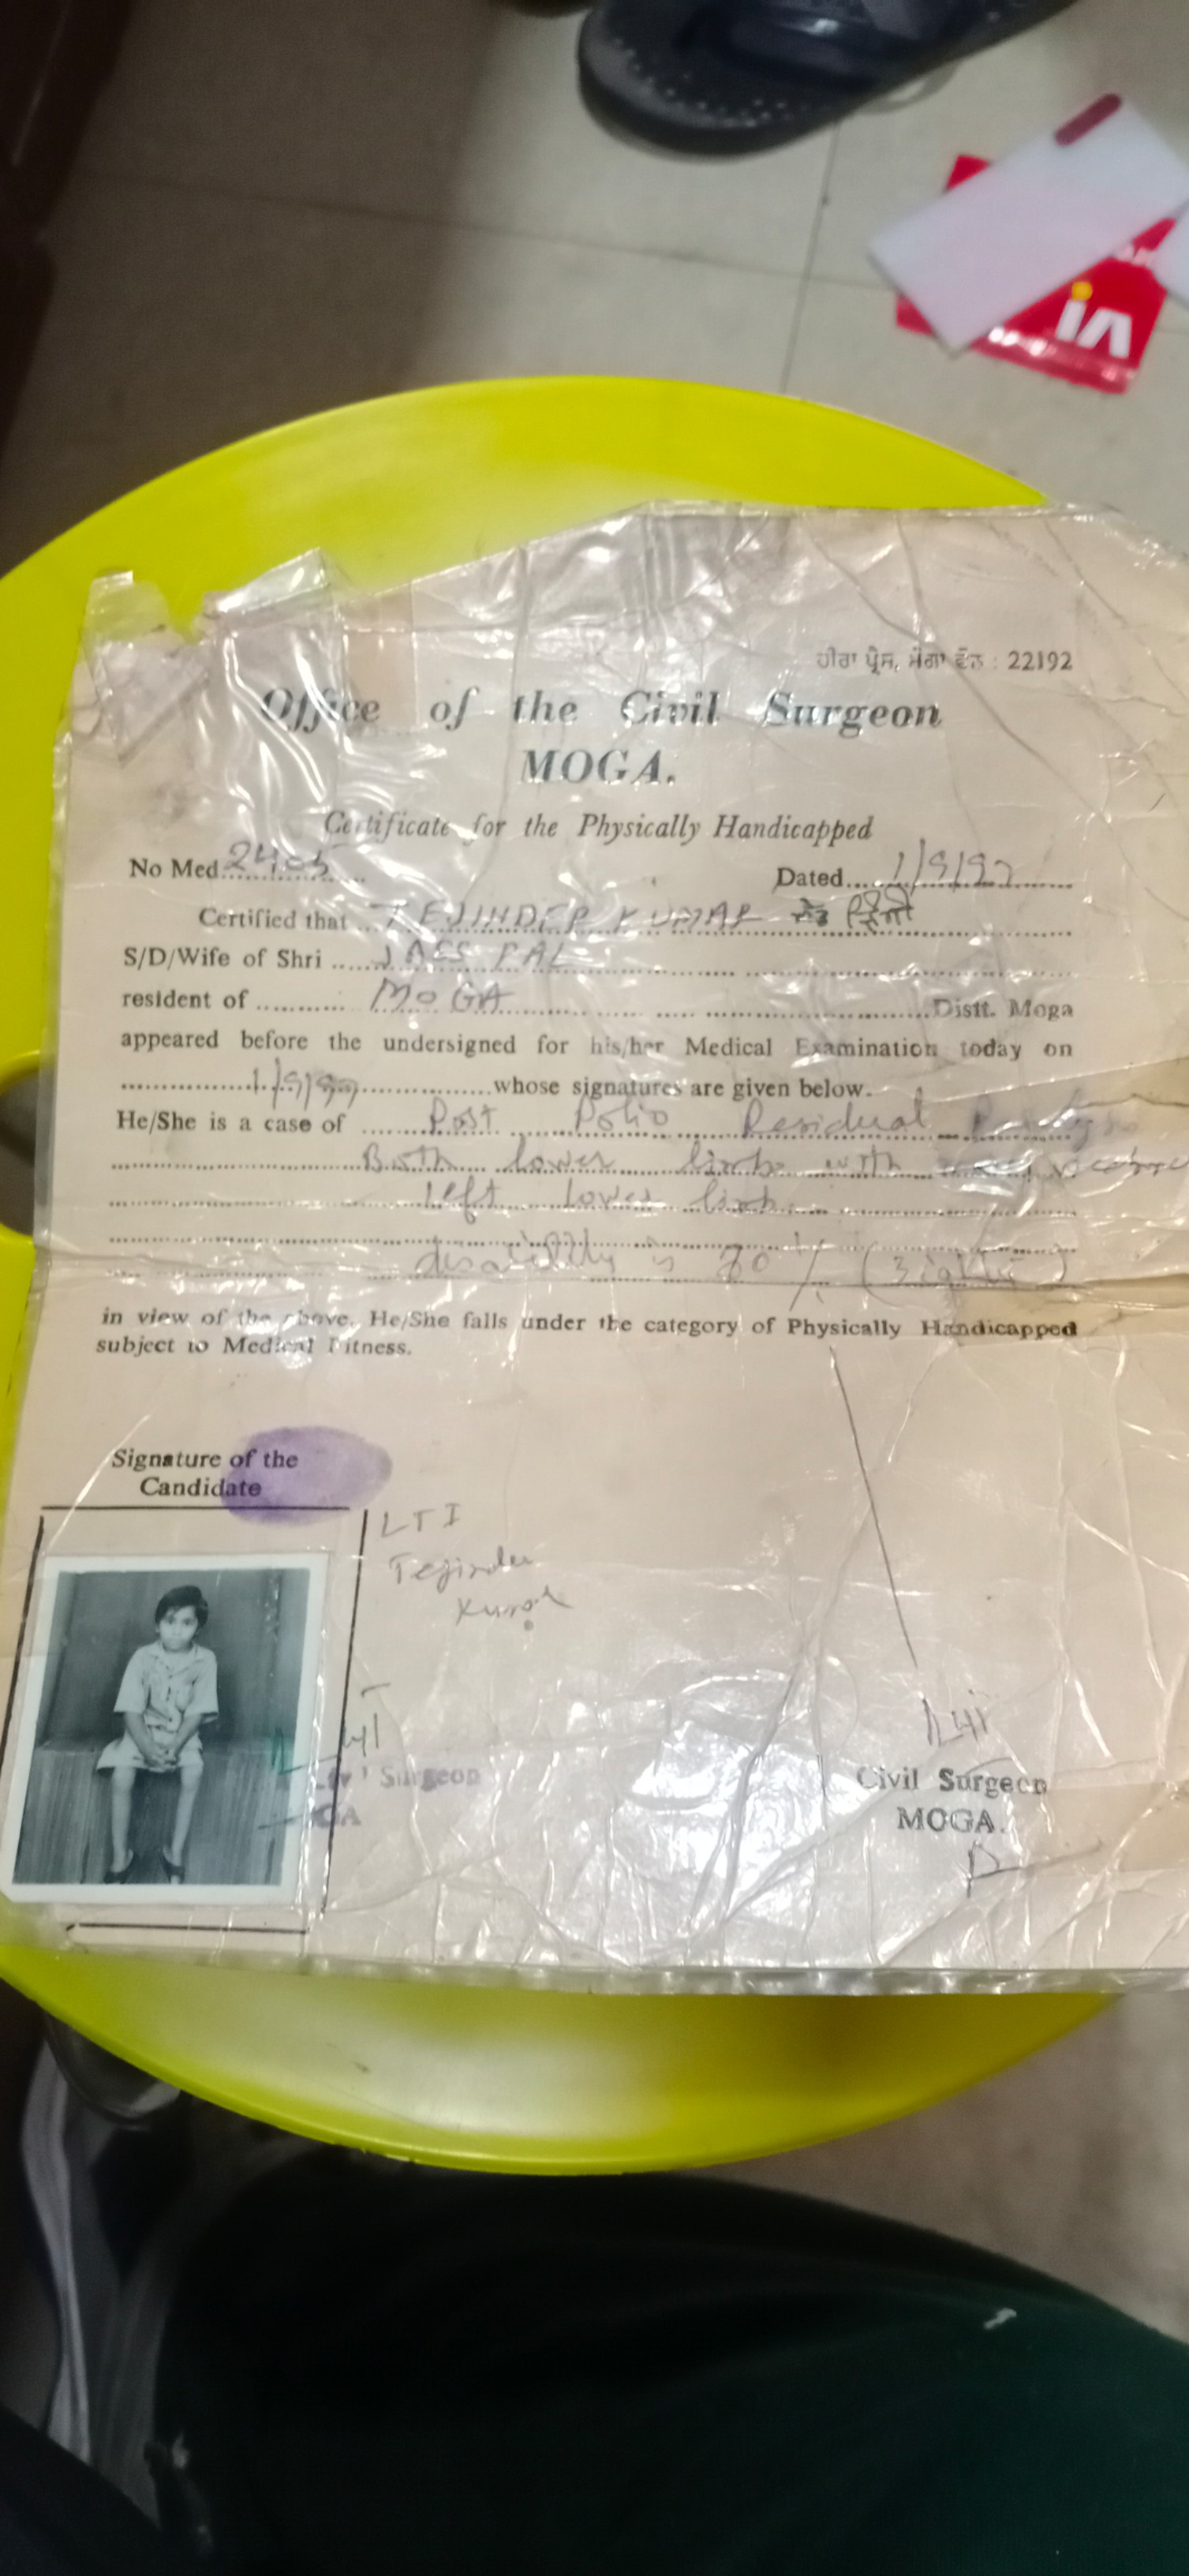 Vi
ਹੀਰਾ ਪ੍ਰੈਸ, ਮੋਗਾ ਫੋਨ : 22192
Office of the Civil Surgeon
MOGA.
Certificate for the Physically Handicapped
No Med. Dated 1/9/97
Certified that TEJINDER KUMAR
S/D/Wife of Shri PAL
resident of MOGA Distt. Moga
appeared before the undersigned for his/her Medical Examination today on
1/9/97 whose signatures are given below.
He/She is a case of Post Polio Residual
Both lower limbs with
left lower limb
disability is 80 %
in view of the above. He/She falls under the category of Physically Handicapped
subject to Medical Fitness.
Signature of the
Candidate
LTI
Tejinder
Kumar
Surgeon
Civil Surgeon
MOGA.